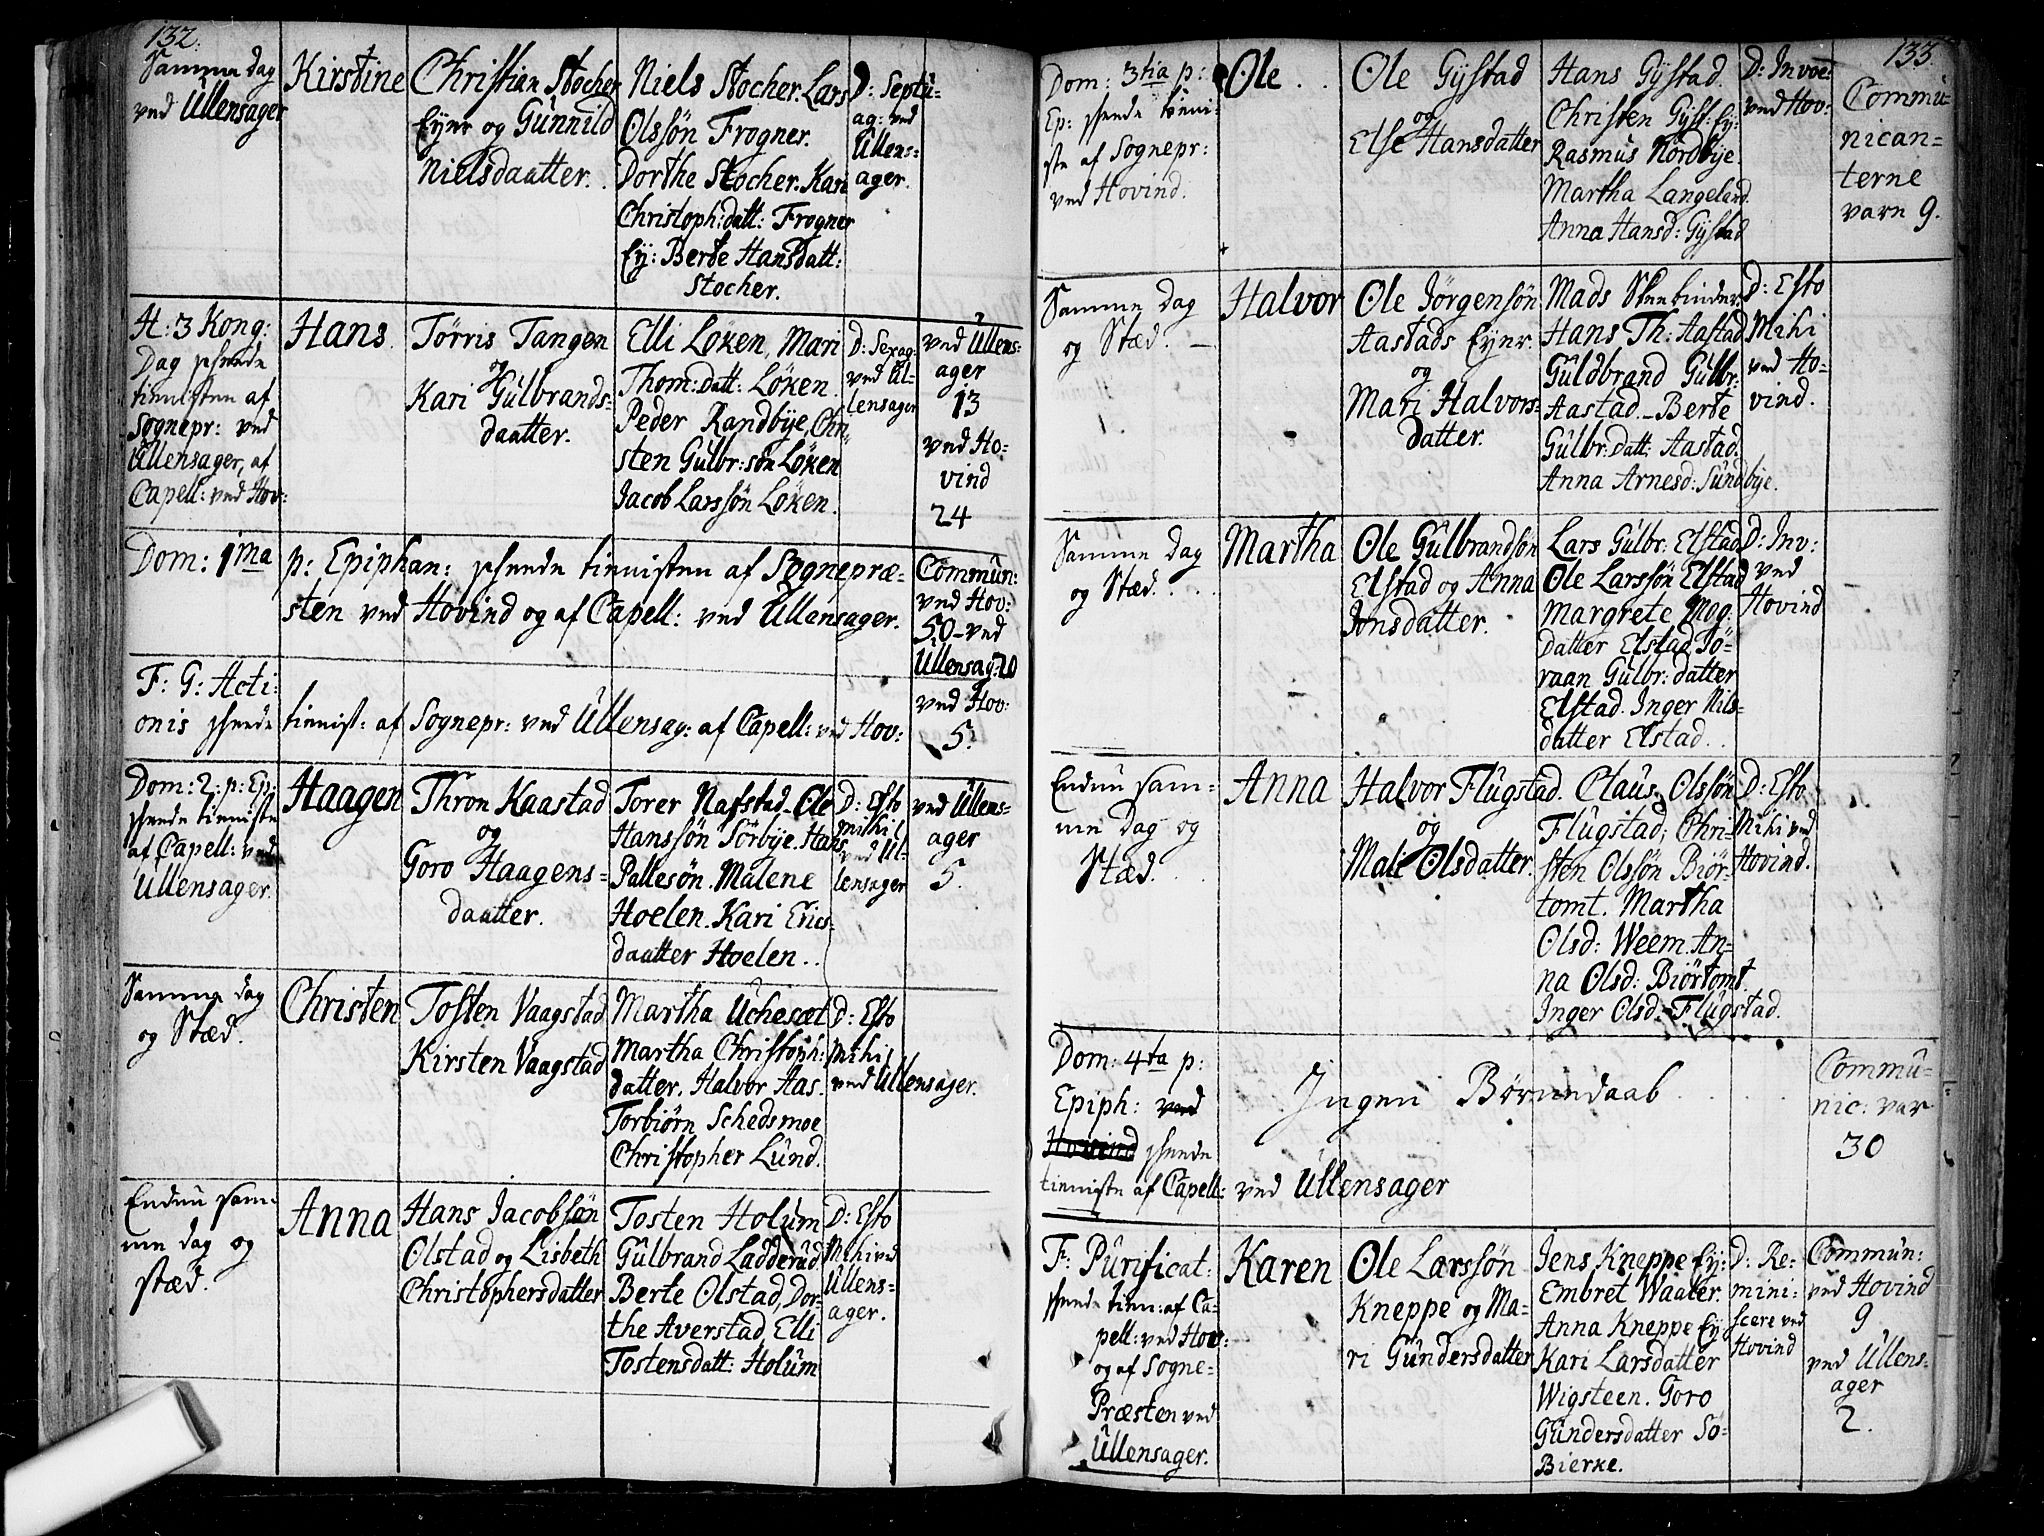 132.
Samme Dag
ved Ullensager
Kirstine
Christian Stocher
Eyer og Gunnild
Nielsdaatter.
Niels Stocher. Lars
Olssön Frogner.
Dorthe Stocher. Kari
Christoph: datt: Frogner
Ey: Berte Hansdatt:
Stocher.
D: Septu-
ag: ved
Ullens-
ager.
H: 3 Kong:
Dag
tienisten af
Sognepr: ved
Ullensager, af
Capell: ved Hov:
Hans.
Tørris Tangen
og
Kari Gulbrands-
daatter.
Elli Löken, Mari
Thom: datt: Löken.
Peder Randbye, Chri-
sten Gulbr: sön Löken
Jacob Larssön Löken.
D: Sexag:
ved Ul-
lensager
ved Ullens-
ager
13
ved Ho-
vind
24
Dom: 1ma p: Epiphan: skeede tienisten af Sognepræ-
sten ved Hovind og af Capell: ved Ullensager.
Commun:
ved Hov:
50 ved
Ullensag: 20
F: G: Acti-
onis skeede tienist: af Sognepr: ved Ullensag: af Capell: ved Hov:
ved Hov:
5.
Dom: 2: p: Ep:
skeede tieniste
af Capell: ved
Ullensager.
Haagen
Thron Kaastad
og
Goro Haagens-
daatter.
Torer Nafstad. Ole
Hanssön Sörbye. Hans
Pallesön. Malene
Hoelen. Kari Erics-
daatter Hoelen.
D: Esto
mihi
ved Ul-
lensager
ved Ullens-
ager
5.
Samme Dag
og Stæd.
Christen
Tosten Vaagstad
Kirsten Vaagstad
Martha Uchesæt
Martha Christoph:
datter. Halvor Aas.
Torbiörn Schedsmoe
Christopher Lund.
D: Esto
Mihi
ved Ullensager.
Endnu sam-
me Dag og
stæd.
Anna
Hans Jacobsön
Olstad og Lisbeth
Christophersdatter
Tosten Holum
Gulbrand Ladderud
Berte Olstad, Dor-
the Averstad, Elli
Tostensdatt: Holum
D: Esto
Mihi ved
Ullens-
ager.
133.
Dom: 3tia p:
Ep: skeede tieni-
ste af Sognepr:
ved Hovind.
Ole
Ole Gystad
og
Else Hansdatter
Hans Gystad.
Christen Gyst: Ey:
Rasmus Nordbye.
Martha Langeland.
Anna Hansd: Gystad
D: Invoc:
ved Hov:
Commu-
nican-
terne
vare 9.
Samme Dag
og Stæd.
Halvor
Ole Jörgensön
Aastads Eyer.
og
Mari Halvors-
datter.
Mads
Hans Th: Aastad
Guldbrand Gulbr:
Aastad. Berte
Gulbr: datt: Aastad.
Anna Arnesd: Sundbye.
D: Esto
Mihi
ved Ho-
vind.
Samme Dag
og Stæd.
Martha
Ole Gulbrandsön
Elstad og Anna
Jonsdatter.
Lars Gulbr: Elstad
Ole Larssön Elstad
Margrete Mog:
datter Elstad Jö-
raan Gulbr: datter
Elstad. Inger Nils-
datter Elstad.
D: Inv:
ved
Hovind
Endnu sam-
me Dag og
Stæd.
Anna
Halvor Flugstad.
og
Mali Olsdatter.
Claus Olssön
Flugstad; Chri-
sten Olssön Biör-
tomt. Martha
Olsd: Weem. An-
na Olsd: Biörtomt.
Inger Olsd: Flugstad.
D: Esto
Mihi ved
Hovind.
Dom: 4ta p:
Epiph: ved
Hovind skeede
tieniste af Capell: ved Ullensager
Ingen Börnedaab
Commu-
nic: var
30
F: Purificat:
skeede tien: af Ca-
pell: ved Hov:
og af Sogne-
Præsten ved
Ullensager.
Karen
Ole Larssön
Kneppe og Ma-
ri Gundersdatter
Jens Kneppe Ey:
Embret Waaler.
Anna Kneppe Ey:
Kari Larsdatter
Wigsteen. Goro
Gundersdatter Sö-
Bierke.
D: Re-
mini-
scere ved
Hovind
Commun:
ved Hovind
9
ved Ullens-
ager
2.